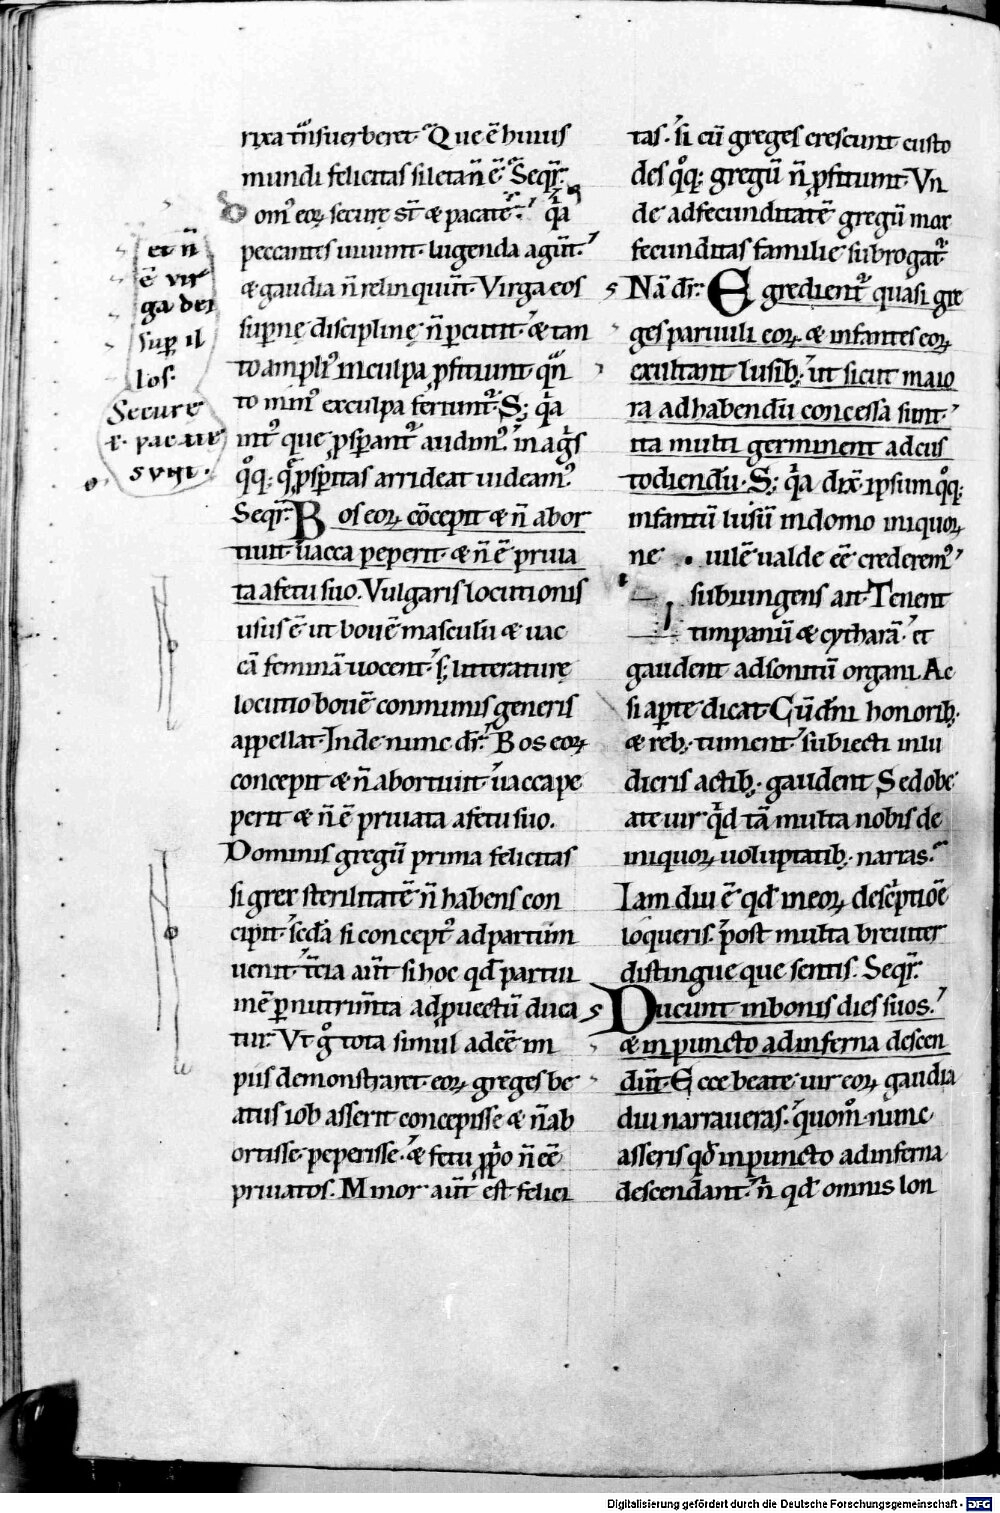 rixa tͫsuerberet. Que ē huius
mundi felicitas si leta n̄ ē. Seqr̄.
Domꝰ eoꝝ secure st̄ & pacate. qa
peccantes uiuunt. lugenda agūt.
& gaudia n̄ relinquūt. Virga eos
supnę disciplinę n̄ pcutit. & tan
to ampliꝰ in culpa ꝓficiunt. qn̄
to minꝰ ex culpa feriuntᷣ. S; qa
intꝰ que ꝓsperantᷣ audimꝰ. in agͥs
qͦq; q̄ ꝓspitas arrideat uideamꝰ.
Seqr̄. Bos eoꝝ cōcepit & n̄ abor
tiuit. uacca peperit. & n̄ ē priua
ta a fetu suo. Vulgaris locutionis
usus ē ut bouē masculū & uac
cā feminā uocent. s; litteraturę
locutio bouē communis generis
appellat. Inde nunc dr̄. Bos eoꝝ
concepit & n̄ abortiuit. uacca pe
perit & n̄ ē priuata a fetu suo.
Dominis gregū prima felicitas
si grex sterilitatē n̄ habens con
cipit. scd̄a si conceptꝰ ad partum
uenit. t̄cia aut̄ si hoc qd̄ partui
mē p nutrim̄ta ad ꝓuectū duca
tur. Vt gͦ tota simul adeē im
piis demonstraret. eoꝝ greges be
atus iob asserit concepisse & n̄ ab
ortisse. peperisse. & fetu ꝓpͥo n̄ eē
priuatos. Minor aut̄ est felici
et n̄
ē vir
ga dei
sup il
los.
Secure
& pacate
sunt.
tas. si cū greges crescunt custo
des qͦq; gregū n̄ ꝓficiunt. Vn
de ad fecunditatē gregū mox
fecunditas familie subrogatᷣ.
Nā dr̄. Egredientᷣ quasi gre
ges paruuli eoꝝ. & infantes eoꝝ
exultant lusib;. ut sicut maio
ra ad habendū concessa sunt.
ita multi germinent ad cus
todiendū. S; qa dix̄ ipsum qͦq;
infantū lusū in domo iniquoꝝ
ne uilē ualde eē crederemꝰ.
subiungens ait. Tenent
timpanū & cytharā. et
gaudent ad sonitū organi. Ac
si apte dicat. Cū dn̄i honorib;.
& reb;. tument. subiecti in lu
dicris actib;. gaudent. Sed o be
ate uir qd tā multa nobis de
iniquoꝝ uoluptatib;. narras.
Iam diu ē qd̄ in eoꝝ descͥptiōe
loqueris. post multa breuiter
distingue que sentis. Seqr̄.
Ducunt in bonis dies suos.
& in puncto ad inferna descen
dūt. Ecce beate uir eoꝝ gaudia
diu narraueras. quomͦ nunc
asseris qd̄ in puncto ad inferna
descendant. nͥ qd̄ omnis lon
Digitalisierung gefördert durch die Deutsche Forschungsgemeinschaft - DFG